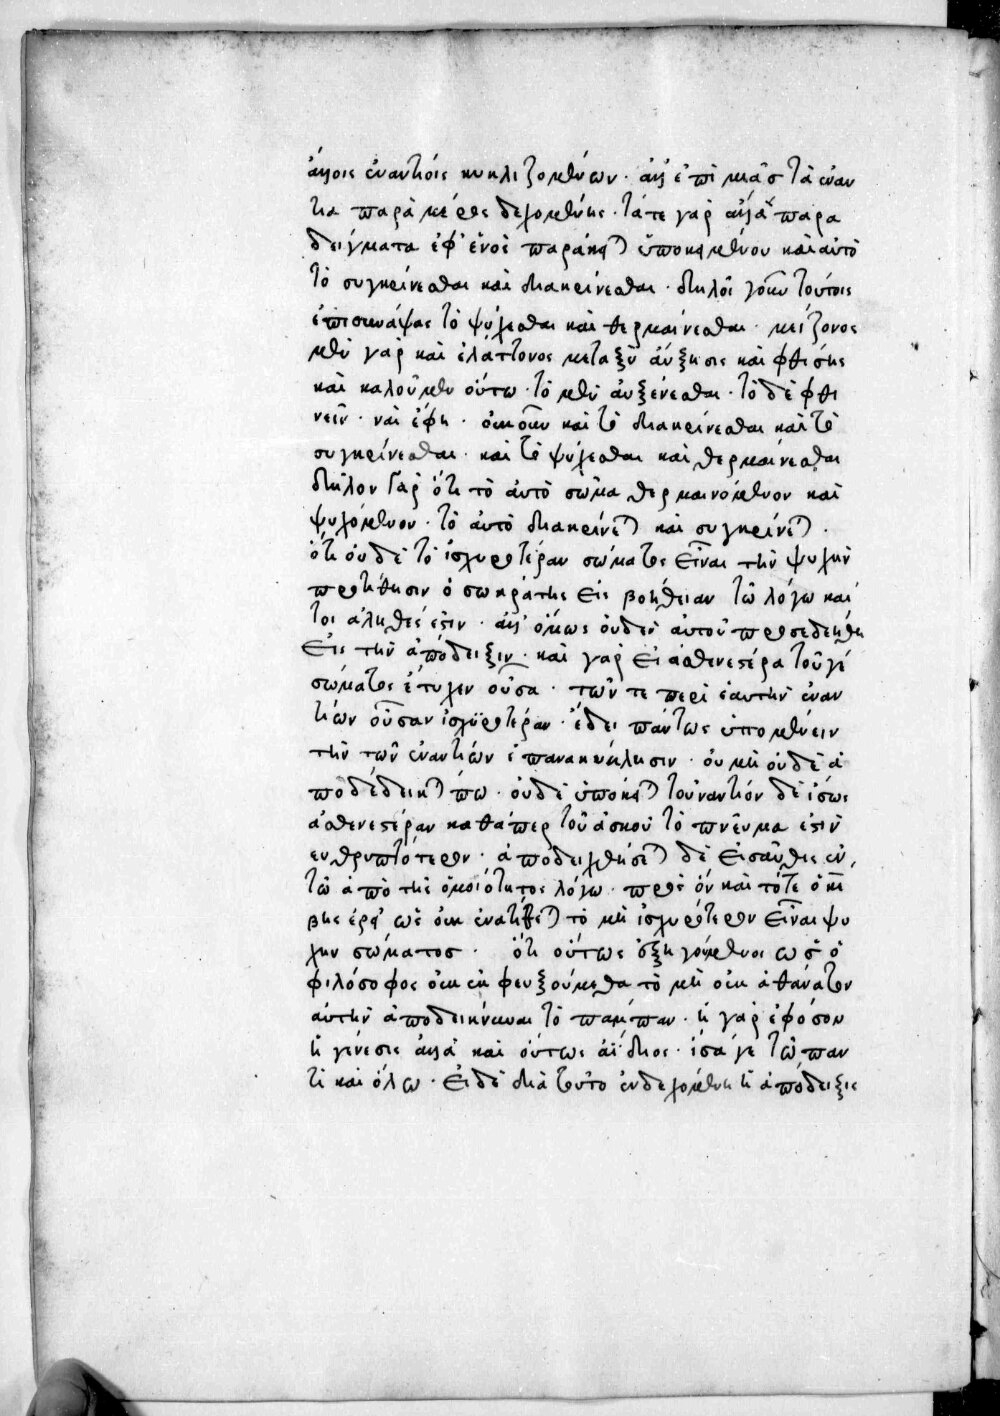 ἄλλοις ἐναντίοις κυκλιζομένων. ἀλλ' ἐπὶ μιᾶς τὰ ἐναν
τία παρὰ μέρος δεχομένης. τά τε γὰρ ἄλλα παρα
δείγματα ἐφ' ἑνὸς παράκειται ὑποκειμένου καὶ αὐτὸ
τὸ συγκρίνεσθαι καὶ διακρίνεσθαι. δηλοῖ γοῦν τούτοις
ἐπισυνάψας τὸ ψύχεσθαι καὶ θερμαίνεσθαι. μείζονος
μὲν γὰρ καὶ ἐλάττονος μεταξὺ αὔξησις καὶ φθίσης
καὶ καλοῦμεν οὕτω. τὸ μὲν αὐξένεσθαι. τὸ δὲ φθί
νειν. ναὶ ἔφη. οὐκοῦν καὶ τὸ διακρίνεσθαι καὶ τὸ
συγκρίνεσθαι. καὶ τὸ ψύχεσθαι καὶ θερμαίνεσθαι
δῆλον γὰρ ὅτι τὸ αὐτὸ σῶμα θερμαινόμενον καὶ
ψυχόμενον. τὸ αὐτὸ διακρίνεται καὶ συγκρίνεται.
ὅτι οὐδὲ τὸ ἰσχυροτέραν σώματος εἶναι τὴν ψυχὴν
προστίθησιν ὁ σωκράτης εἰς βοήθειαν τῶ λόγω καί
τοι ἀληθές ἐστιν. ἀλλ' ὅμως οὐδὲν αὐτοῦ προσεδεήθη
εἰς τὴν ἀπόδειξιν. καὶ γὰρ εἰ ἀσθενεστέρα τοῦ γε
σώματος ἔτυχεν οὖσα. τῶν τε περὶ ἑαυτὴν ἐναν
τίων οὖσαν ἰσχυροτέραν. ἔδει πάντως ὑπομένειν
τὴν τῶν ἐναντίων ἐπανακύκλησιν. οὐ μὴ οὐδὲ ἀ
ποδέδεικται πω. οὐδὲ ὑπόκειται τοὐναντίον δὲ ἴσως
ἀσθενεστέραν καθάπερ τοῦ ἀσκοῦ τὸ πνεῦμα ἐστὶν
εὐθρυπτότερον. ἀποδειχθήσεται δὲ εἰσαῦθις ἐν
τῶ ἀπὸ τῆς ὁμοιότητος λόγω. πρὸς ὃν καὶ τότε ὁ κέ
βης ἐρεῖ ὡς οὐκ ἐνατίθεται τὸ μὴ ἰσχυρότερον εἶναι ψυ
χὴν σώματος. ὅτι οὕτως ἐξηγούμενοι ὡς ὁ
φιλόσοφος οὐκ ἐκφευξούμεθα τὸ μὴ οὐκ ἀθάνατον
αὐτὴν ἀποδεικνύναι τὸ παράπαν. ἡ γὰρ ἐφόσον
ἡ γένεσις ἀλλὰ καὶ οὕτως ἀΐδιος. ἴσα γε τῶ παν
τὶ καὶ ὅλω. εἰ δὲ διὰ τοῦτο ἐνδεχομένη ἡ ἀπόδειξις